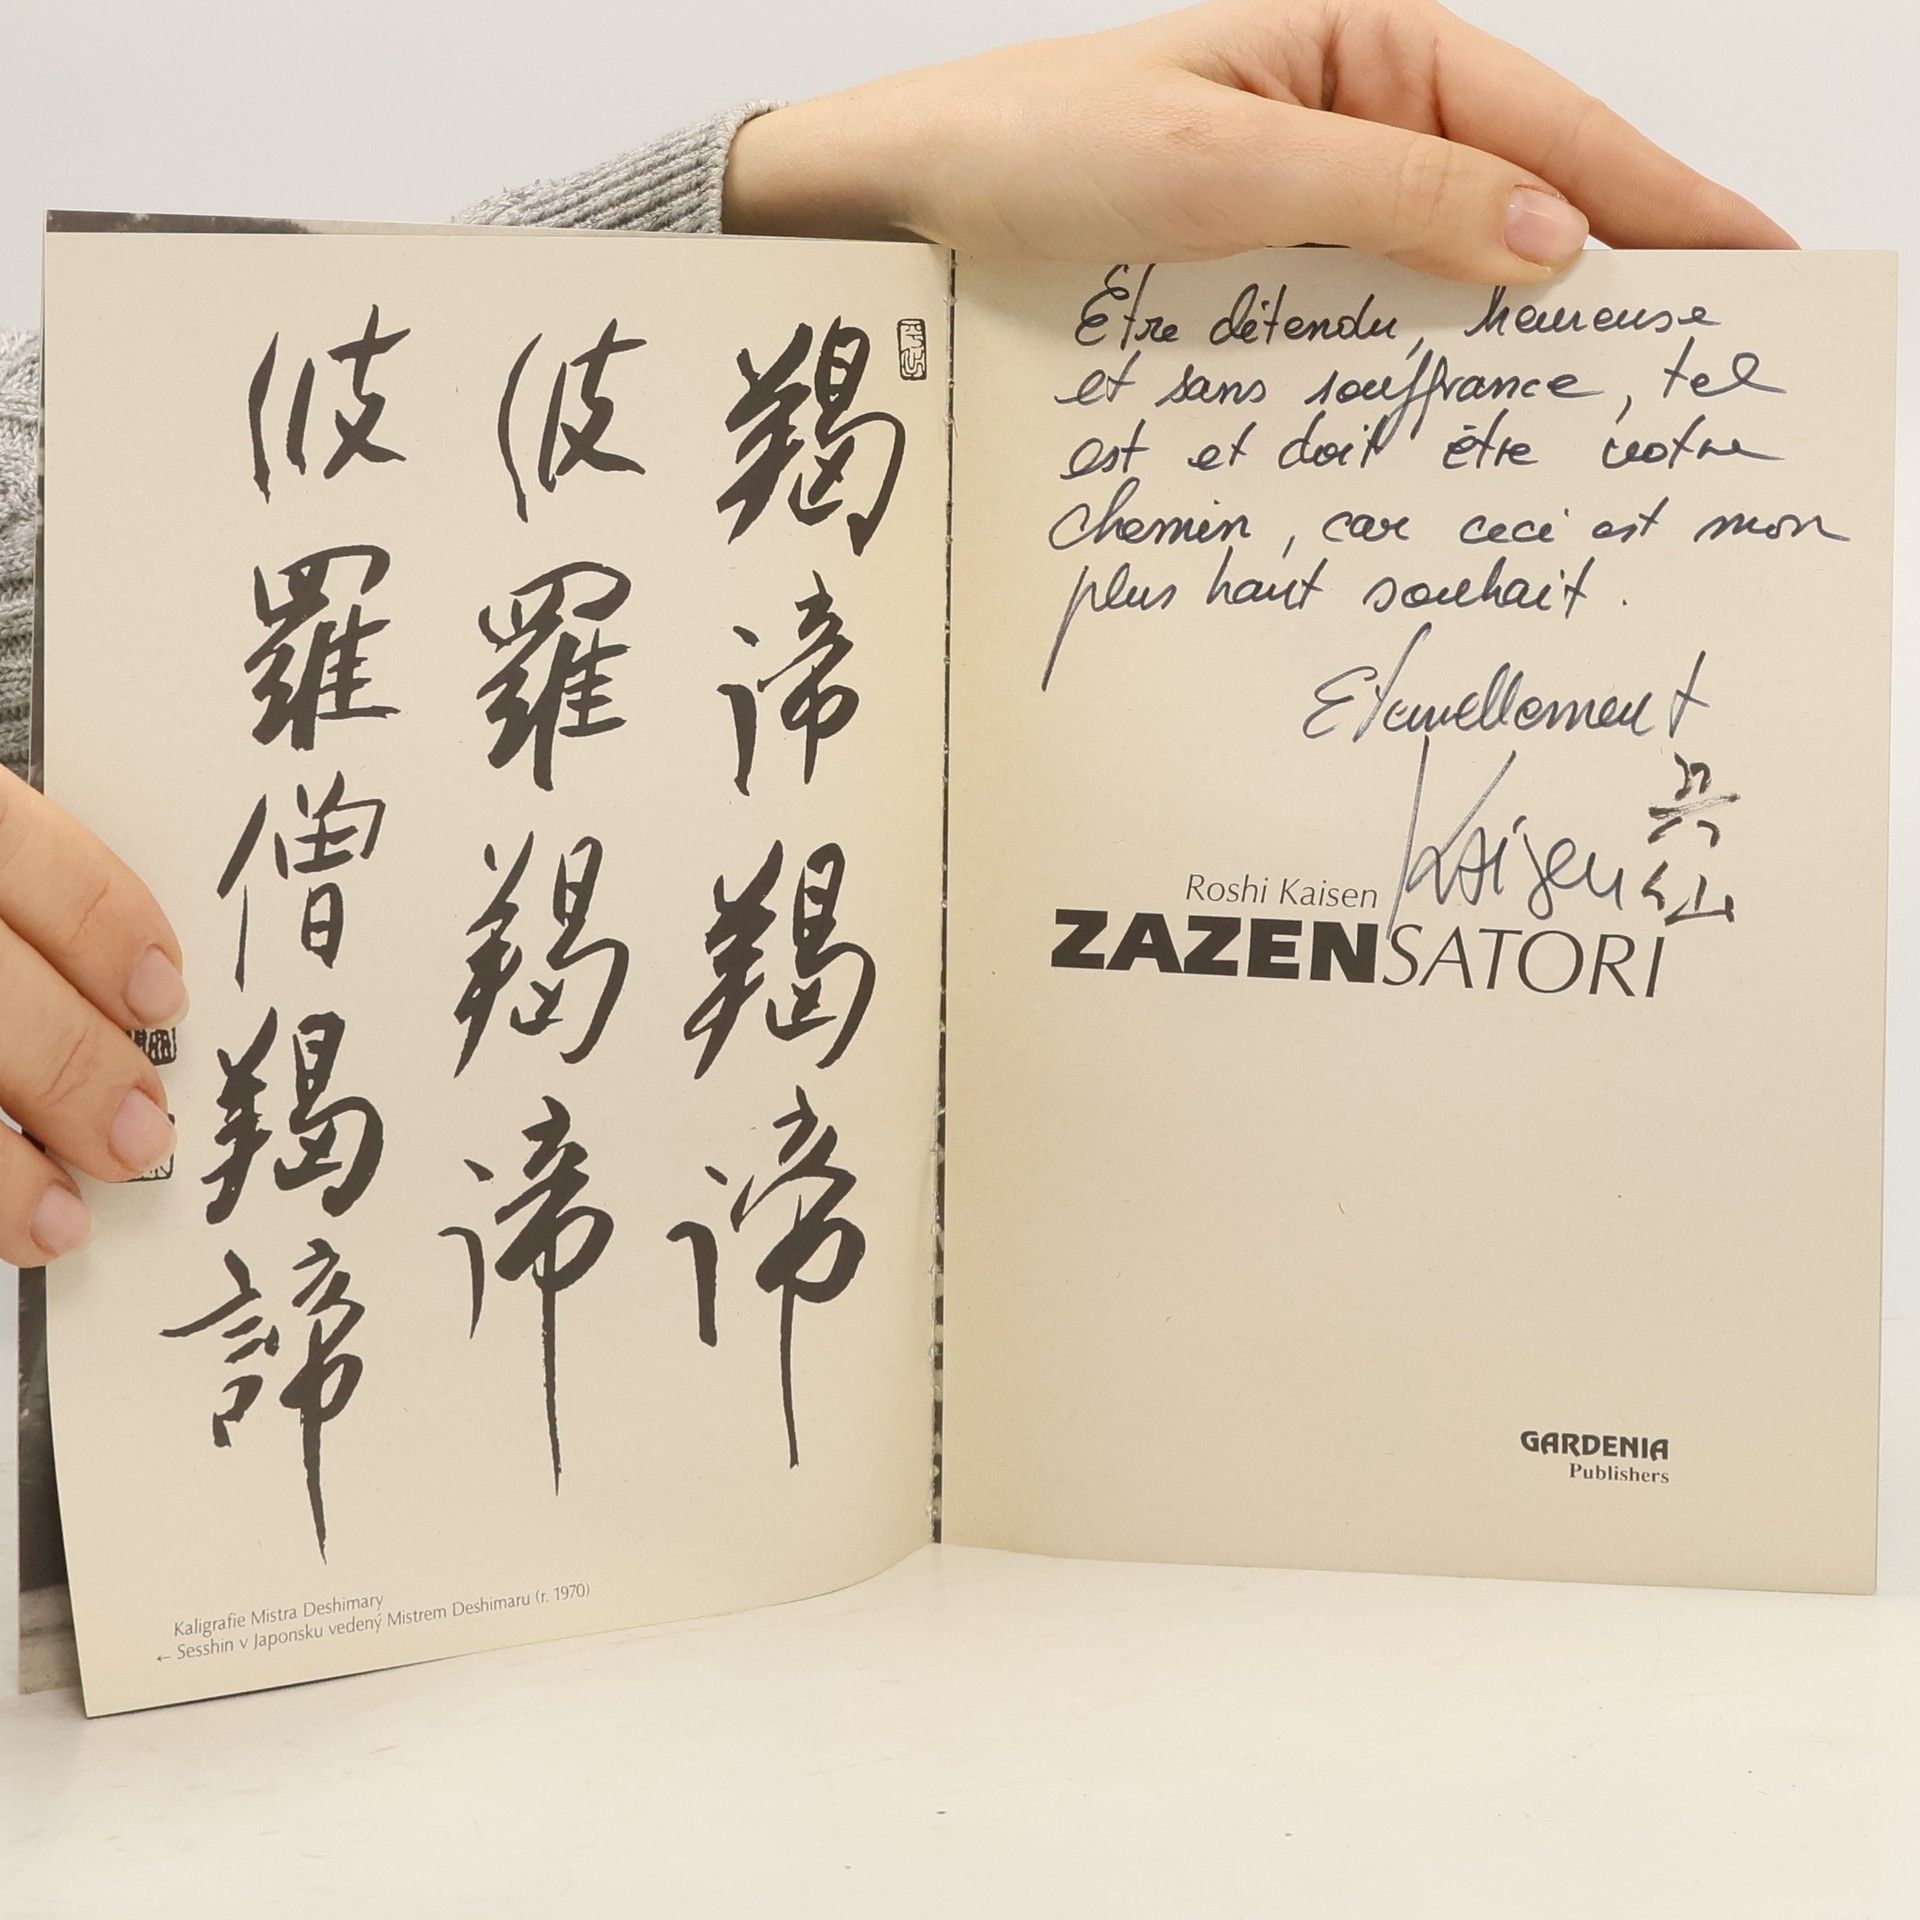 羯諦羯諦
彼羅羯諦
彼羅僧羯諦
Kaligrafie Mistra Deshimary
← Sesshin v Japonsku vedený Mistrem Deshimaru (r. 1970)
Etre détendu, heureuse
et sans souffrance, tel
est et doit être votre
chemin, car ceci est mon
plus haut souhait.
Eternellement
Kaisen
仙
Roshi Kaisen
ZAZENSATORI
GARDENIA
Publishers